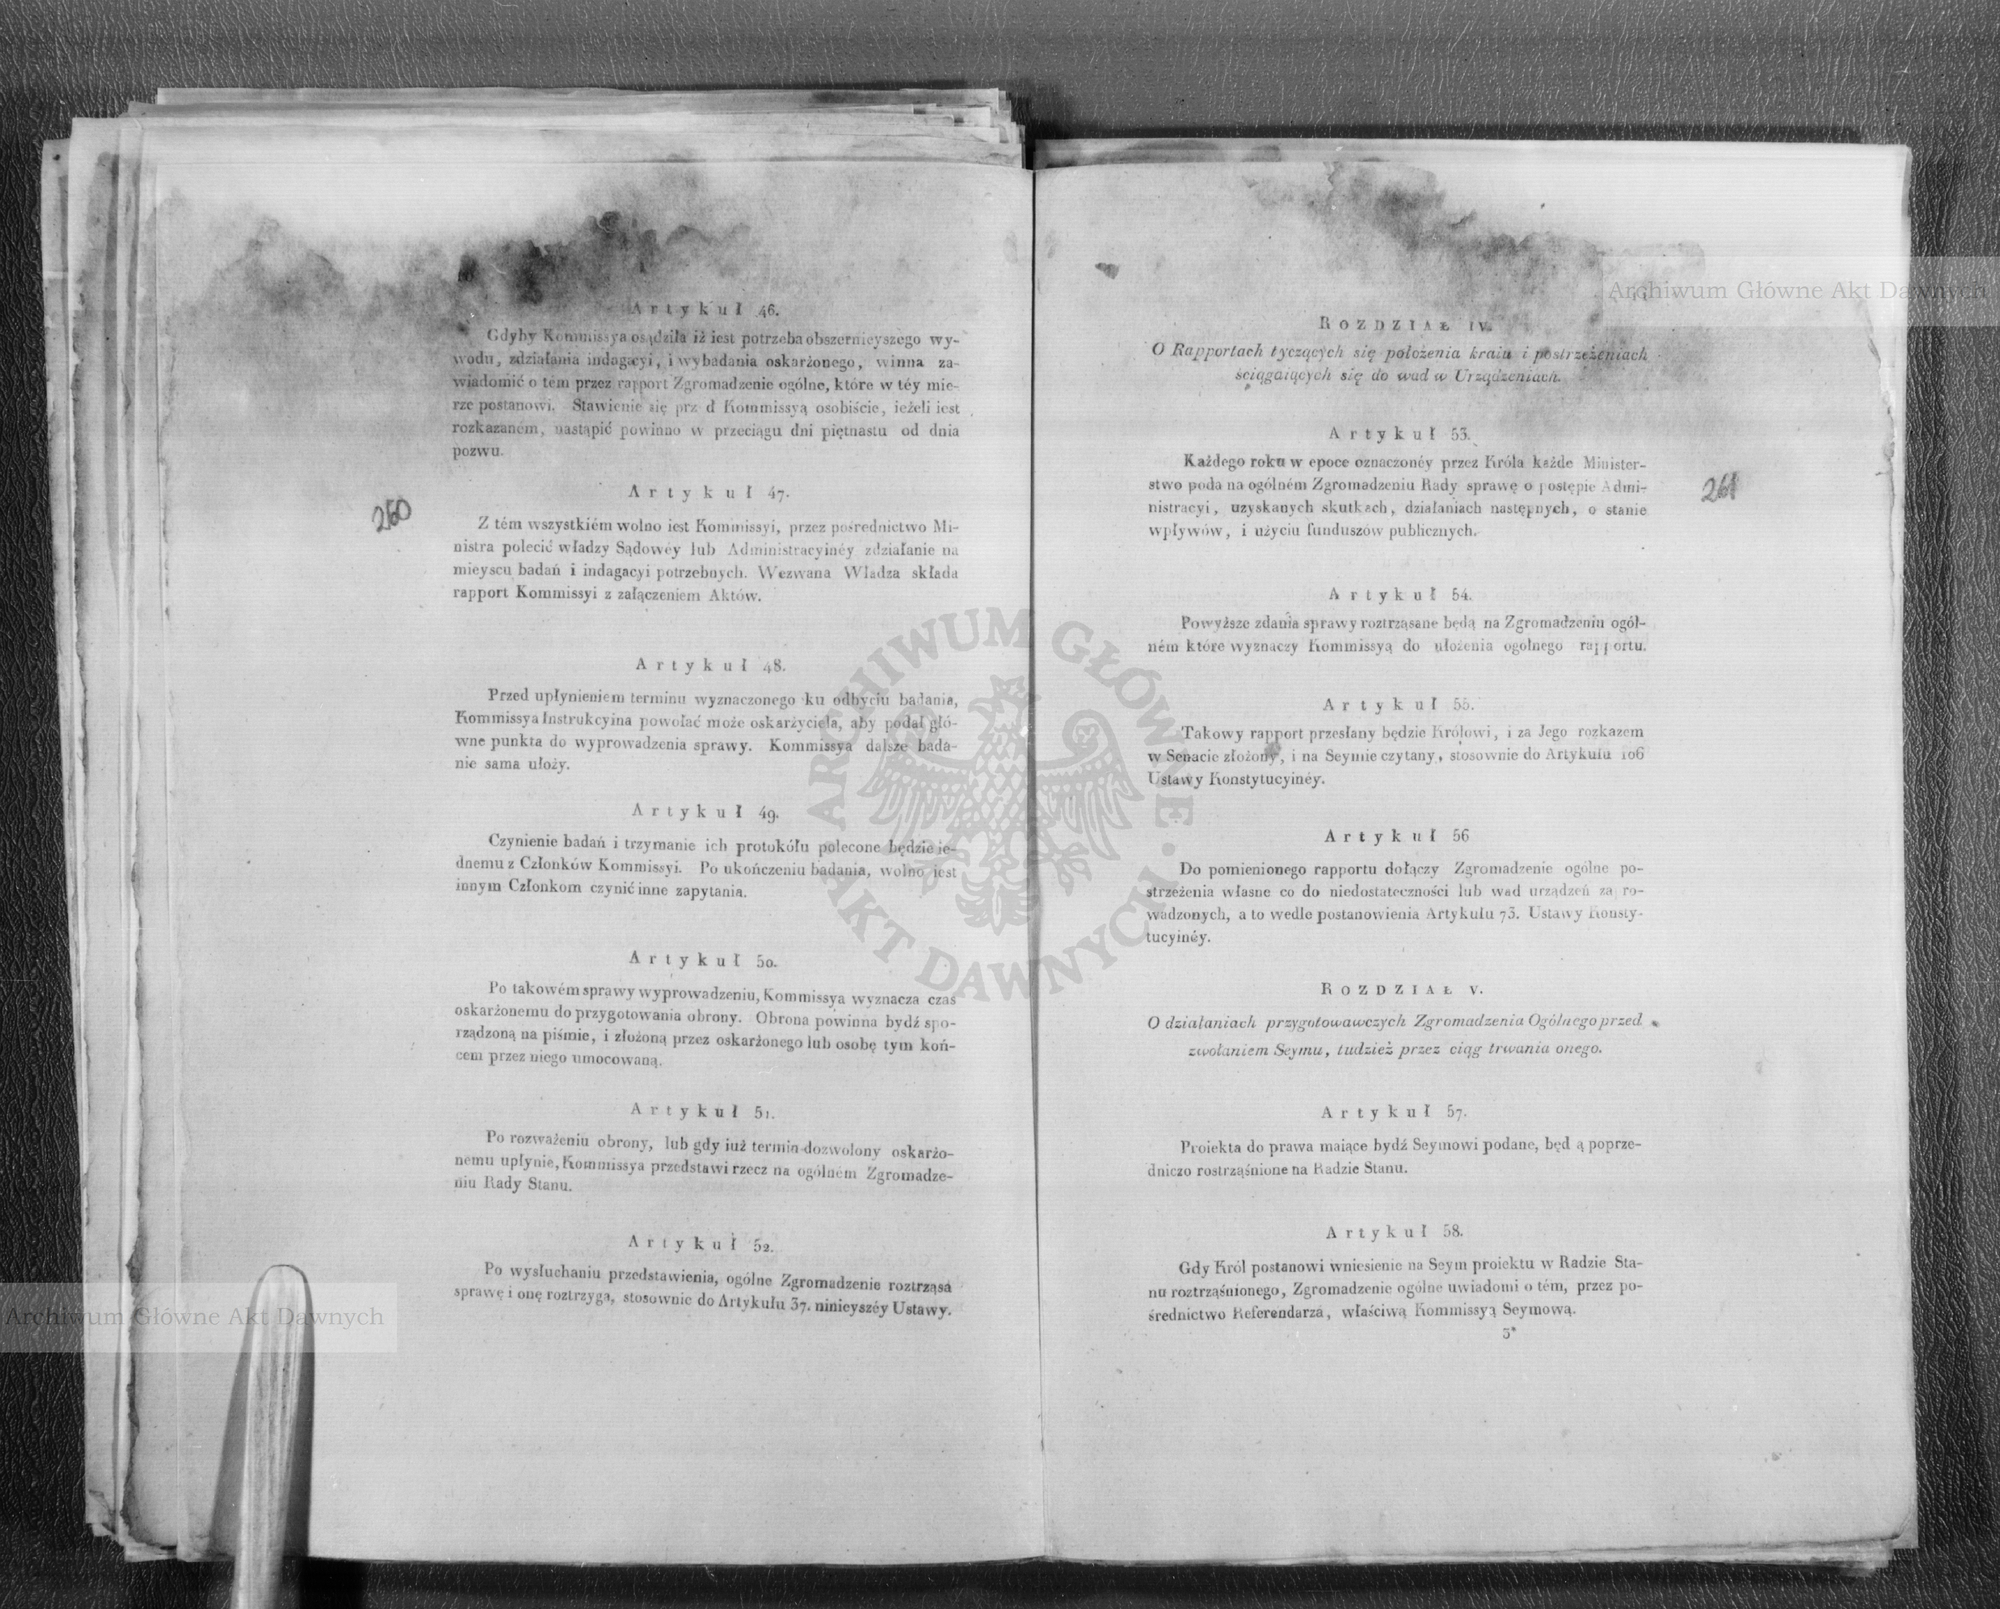 Artykuł 46.
Gdyby Kommissya osądziła iż iest potrzeba obszernieyszego wy-
wodu, zdziałania indagacyi, i wybadania oskarżonego, winna za-
wiadomić o tém przez rapport Zgromadzenie ogólne, które w téy mie-
rze postanowi. Stawienie się prz d Kommissyą osobiście, ieżeli iest
rozkazaném, nastąpić powinno w przeciągu dni piętnastu od dnia
pozwu.
260
Artykuł 47.
Z tém wszystkiém wolno iest Kommissyi, przez pośrednictwo Mi-
nistra polecić władzy Sądowéy lub Administracyinéy zdziałanie na
mieyscu badań i indagacyi potrzebnych. Wezwana Władza składa
rapport Kommissyi z załączeniem Aktów.
Artykuł 48.
Przed upłynieniem terminu wyznaczonego ku odbyciu badania,
Kommissya Instrukcyina powołać może oskarżyciela, aby podał głó-
wne punkta do wyprowadzenia sprawy. Kommissya dalsze bada-
nie sama ułoży.
Artykuł 49.
Czynienie badań i trzymanie ich protokółu polecone będzie ie-
dnemu z Członków Kommissyi. Po ukończeniu badania, wolno iest
innym Członkom czynić inne zapytania.
Artykuł 50.
Po takowém sprawy wyprowadzeniu, Kommissya wyznacza czas
oskarżonemu do przygotowania obrony. Obrona powinna bydź spo-
rządzoną na piśmie, i złożoną przez oskarżonego lub osobę tym koń-
cem przez niego umocowaną.
Artykuł 51.
Po rozważeniu obrony, lub gdy iuż termin dozwolony oskarżo-
nemu upłynie, Kommissya przedstawi rzecz na ogólném Zgromadze-
niu Rady Stanu.
Artykuł 52.
Po wysłuchaniu przedstawienia, ogólne Zgromadzenie roztrząsa
sprawę i onę roztrzyga, stosownie do Artykułu 37. ninieyszéy Ustawy.
ROZDZIAŁ IV.
O Rapportach tyczących się położenia kraiu i postrzeżeniach
ściągaiących się do wad w Urządzeniach.
Artykuł 53.
Każdego roku w epoce oznaczonéy przez Króla każde Minister-
stwo poda na ogólném Zgromadzeniu Rady sprawę o postępie Admi-
nistracyi, uzyskanych skutkach, działaniach następnych, o stanie
wpływów, i użyciu funduszów publicznych.
261
Artykuł 54.
Powyższe zdania sprawy roztrząsane będą na Zgromadzeniu ogól-
ném które wyznaczy Kommissyą do ułożenia ogolnego rapportu.
Artykuł 55.
Takowy rapport przesłany będzie Królowi, i za Jego rozkazem
w Senacie złożony, i na Seymie czytany, stosownie do Artykułu 106
Ustawy Konstytucyinéy.
Artykuł 56
Do pomienionego rapportu dołączy Zgromadzenie ogólne po-
strzeżenia własne co do niedostateczności lub wad urządzeń za ro-
wadzonych, a to wedle postanowienia Artykułu 73. Ustawy Konsty-
tucyinéy.
ROZDZIAŁ V.
O działaniach przygotowawczych Zgromadzenia Ogólnego przed
zwołaniem Seymu, tudzież przez ciąg trwania onego.
Artykuł 57.
Proiekta do prawa maiące bydź Seymowi podane, będ ą poprze-
dniczo rostrząśnione na Radzie Stanu.
Artykuł 58.
Gdy Król postanowi wniesienie na Seym proiektu w Radzie Sta-
nu roztrząśnionego, Zgromadzenie ogólne uwiadomi o tém, przez po-
średnictwo Referendarza, właściwą Kommissyą Seymową.
3*
Archiwum Główne Akt Dawnych
Archiwum Główne Akt Dawnych
ARCHIWUM GŁÓWNE AKT DAWNYCH